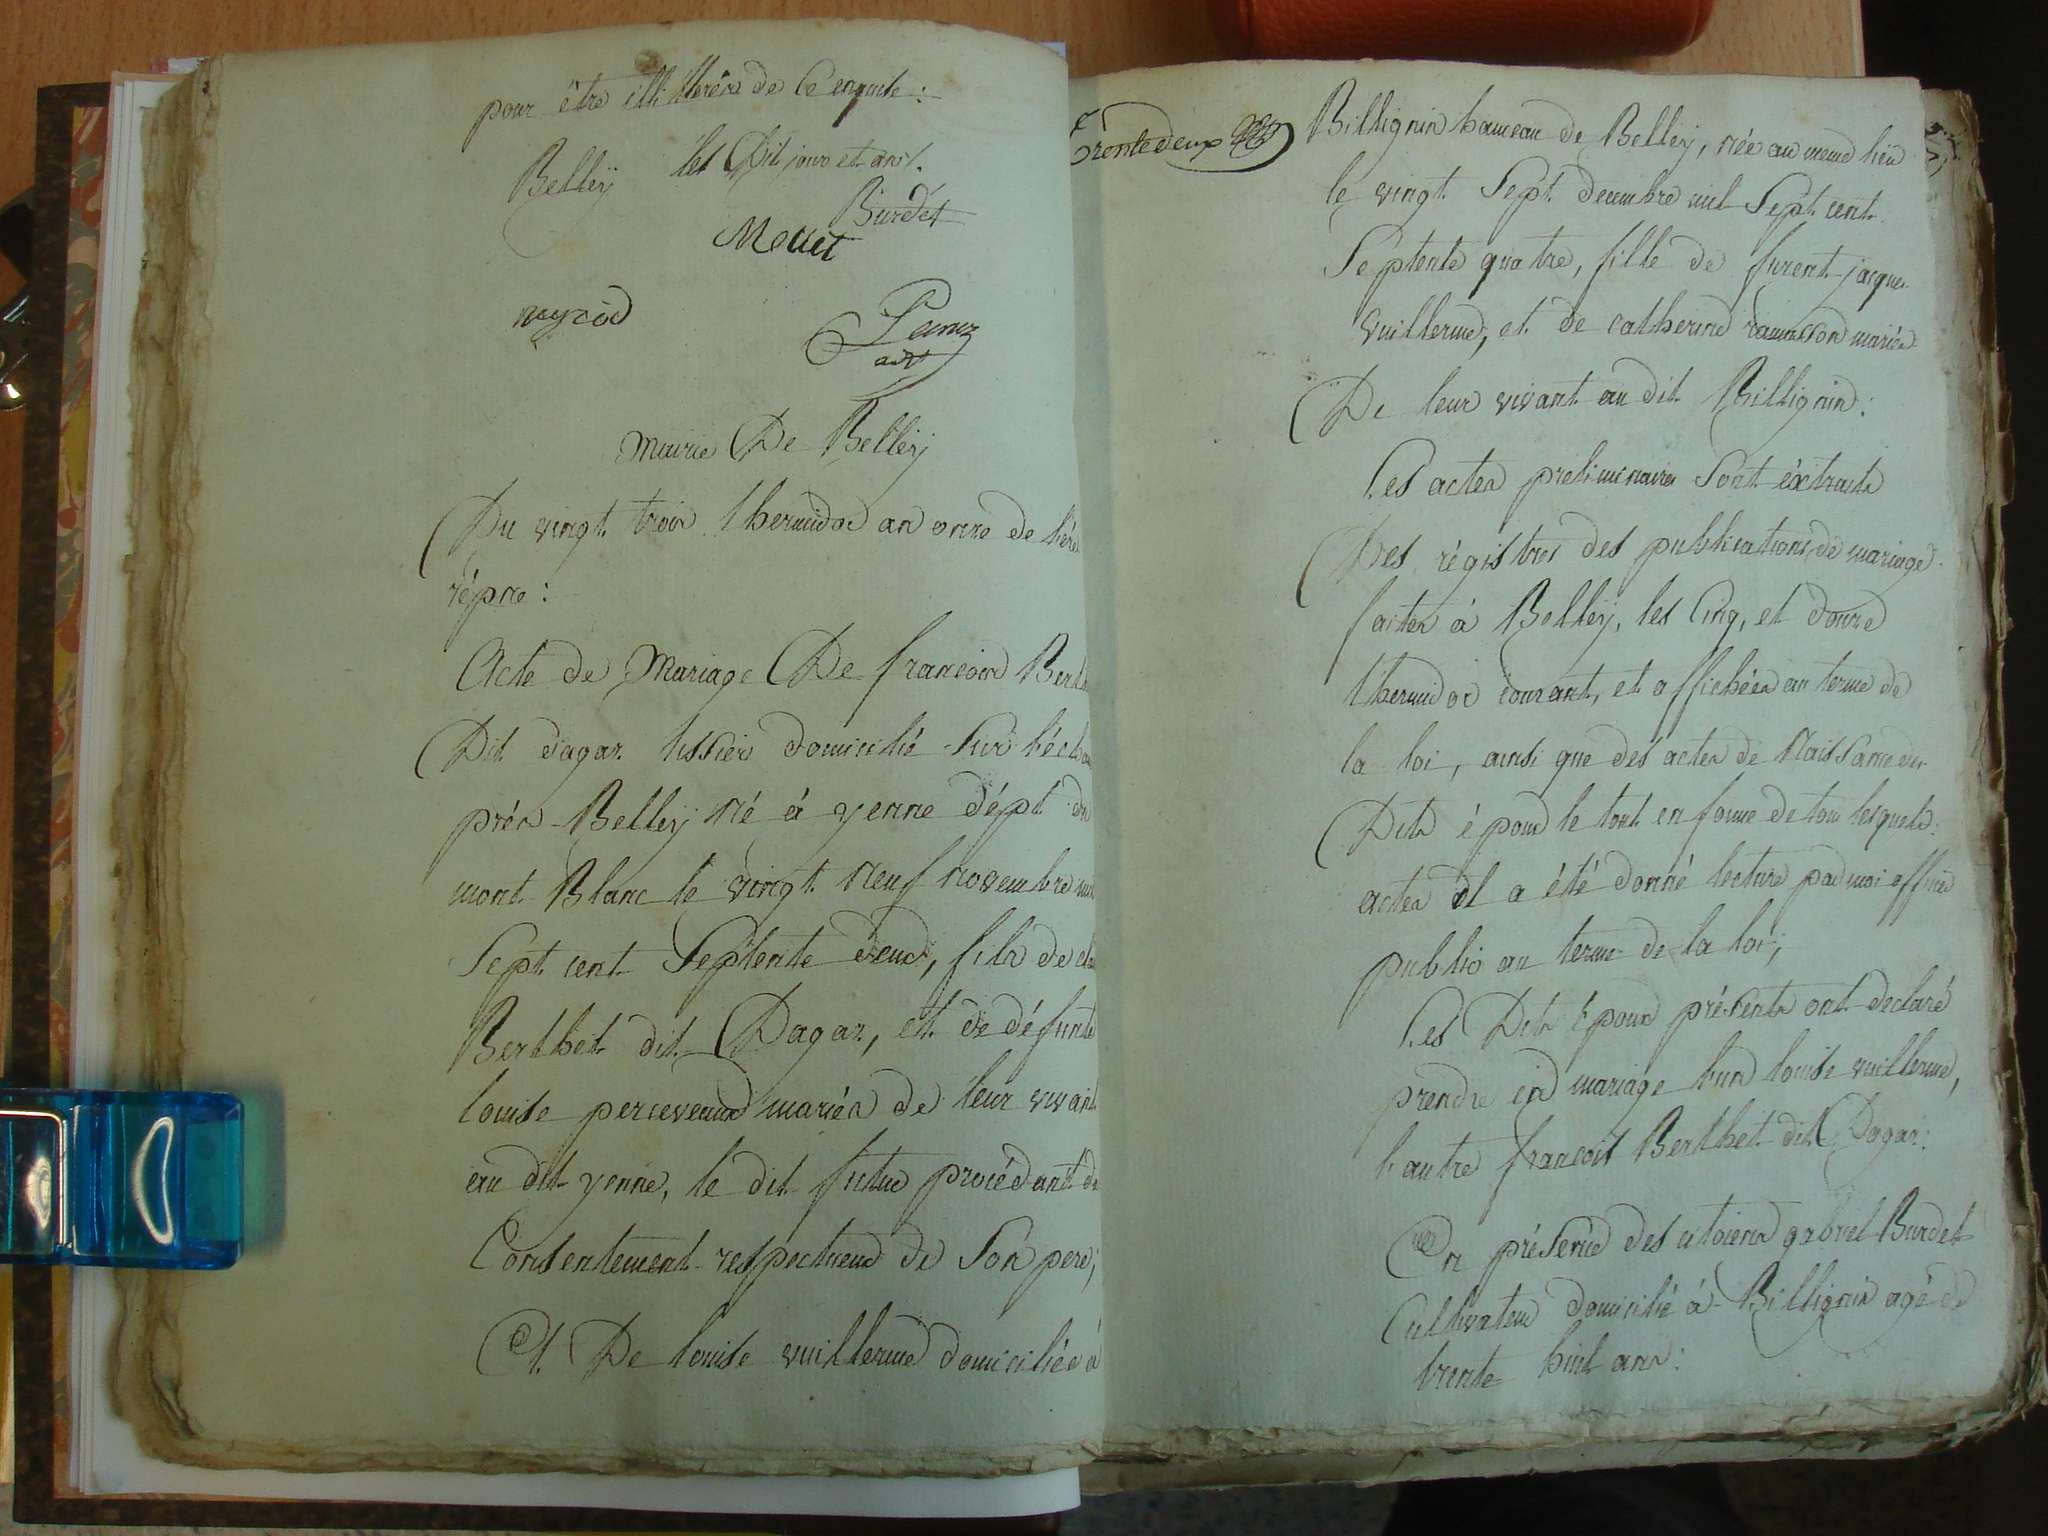 pour être illitterés de ce enquis :
Belleÿ les Dit jour et an /.
Burdet
Mollet
neyrod
adt
Mairie De Belleÿ
Du vingt trois thermidor an onze de l'ére
répne :
Acte de Mariage De francois Berth
Dit dagaz tissier domicilié sur l'écha
prés Belleÿ né à yenne dépt du
mont Blanc le vingt neuf novembre mil
Sept cent Septente deux, fils de cla
Berthet dit Dagaz, et de défunte
louise perceveaux mariés de leur vivant
au dit yenne, le dit futur procédant du
Consentement respectueux de Son pere ;
Et De louise vuillerme domiciliée à
trente deux
Billignin hameau de Belleÿ, née au meme lieu
le vingt Sept decembre mil Sept cent
Septente quatre, fille de furent jacques
vuillerme, et de catherine ramasson mariés
De leur vivant au dit Billignin :
Les actes preliminaires Sont éxtraits
Des régistres des publications de mariage
faites à Belleÿ, les Cinq, et douze
thermidor courant, et affichées au terme de
la loi, ainsi que des actes de Naissance des
Dits époux le tout en forme de tous lesquels
actes il a été donné lecture par moi officier
public au terme de la loi ;
Les Dits époux présents ont declaré
prendre en mariage l'un louise vuillerme,
l'autre francois Berthet dit Dagaz :
En présence des citoiens gabriel Burdet
Cultivateur domicilié à Billignin agé de
trente huit ans :